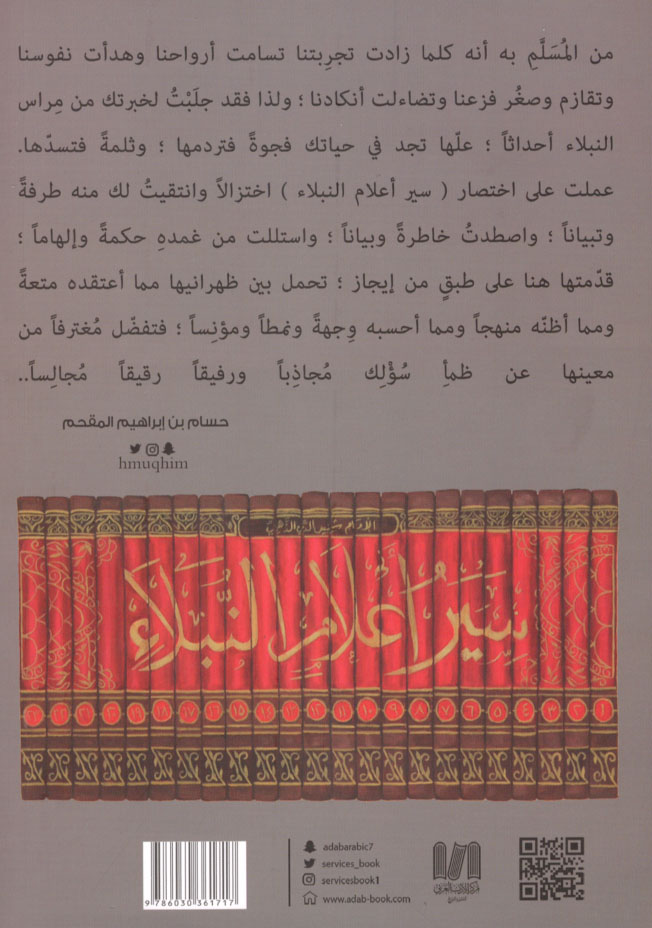 من المُسَلَّمِ به أنه كلما زادت تجرِبتنا تسامت أرواحنا وهدأت نفوسنا
وتقازم وصغُر فزعنا وتضاءلت أنكادنا ؛ ولذا فقد جلَبْتُ لخبرتك من مِراس
النبلاء أحداثاً ؛ علّها تجد في حياتك فجوةً فتردمها ؛ وثلمةً فتسدّها.
عملت على اختصار ( سير أعلام النبلاء ) اختزالاً وانتقيتُ لك منه طرفةً
وتبياناً ؛ واصطدتُ خاطرةً وبياناً ؛ واستللت من غمدهِ حكمةً وإلهاماً ؛
قدّمتها هنا على طبقٍ من إيجاز ؛ تحمل بين ظهرانيها مما أعتقده متعةً
ومما أظنّه منهجاً ومما أحسبه وِجهةً ونمطاً ومؤنِساً ؛ فتفضّل مُغترفاً من
معينها عن ظمأِ سُؤْلِك مُجاذِباً ورفيقاً رقيقاً مُجالِساً..
حسام بن إبراهيم المقحم
hmuqhim
الإمام شمس الدين الذهبي
سير أعلام النبلاء
١ ٢ ٣ ٤ ٥ ٦ ٧ ٨ ٩ ١٠ ١١ ١٢ ١٣ ١٤ ١٥ ١٦ ١٧ ١٨ ١٩ ٢٠ ٢١ ٢٢
adabarabic7
services_book
servicesbook1
www.adab-book.com
مركز الأدب العربي
9 786030 361717